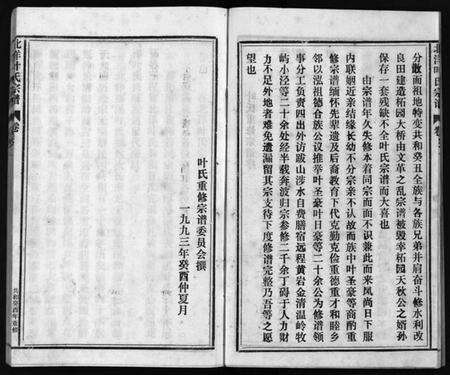 北洋叶氏宗谱
卷
分散而祖地特变共和癸丑全族与各族兄弟并肩奋斗修水利改
良田建造柘园大桥由文革之乱宗谱被毁幸柘园天秋公之婿孙
保存一套残缺不全叶氏宗谱而大喜也
由宗谱年久失修本着同宗而面不识兼此而来风尚日下服
内联姻近亲结缘长幼不分宗亲不认故而族中叶圣豪等商酌重
修宗谱缅怀先辈遗及后裔教育下代克勤克俭重德重才和睦乡
邻以泓祖德合族公议推举叶圣豪叶日豪等二十余公为修谱领
事分工负责四出外访跋山涉水自费膳宿远程黄岩金清温岭牧
屿小泾等二十余处经半载奔波归宗参修二千余丁碍于人力财
力不足外地者难免遗漏留其宗支待下度修谱完整乃吾等之愿
望也
叶氏重修宗谱委员会撰
一九九三年癸酉仲夏月
北洋叶氏宗谱
卷